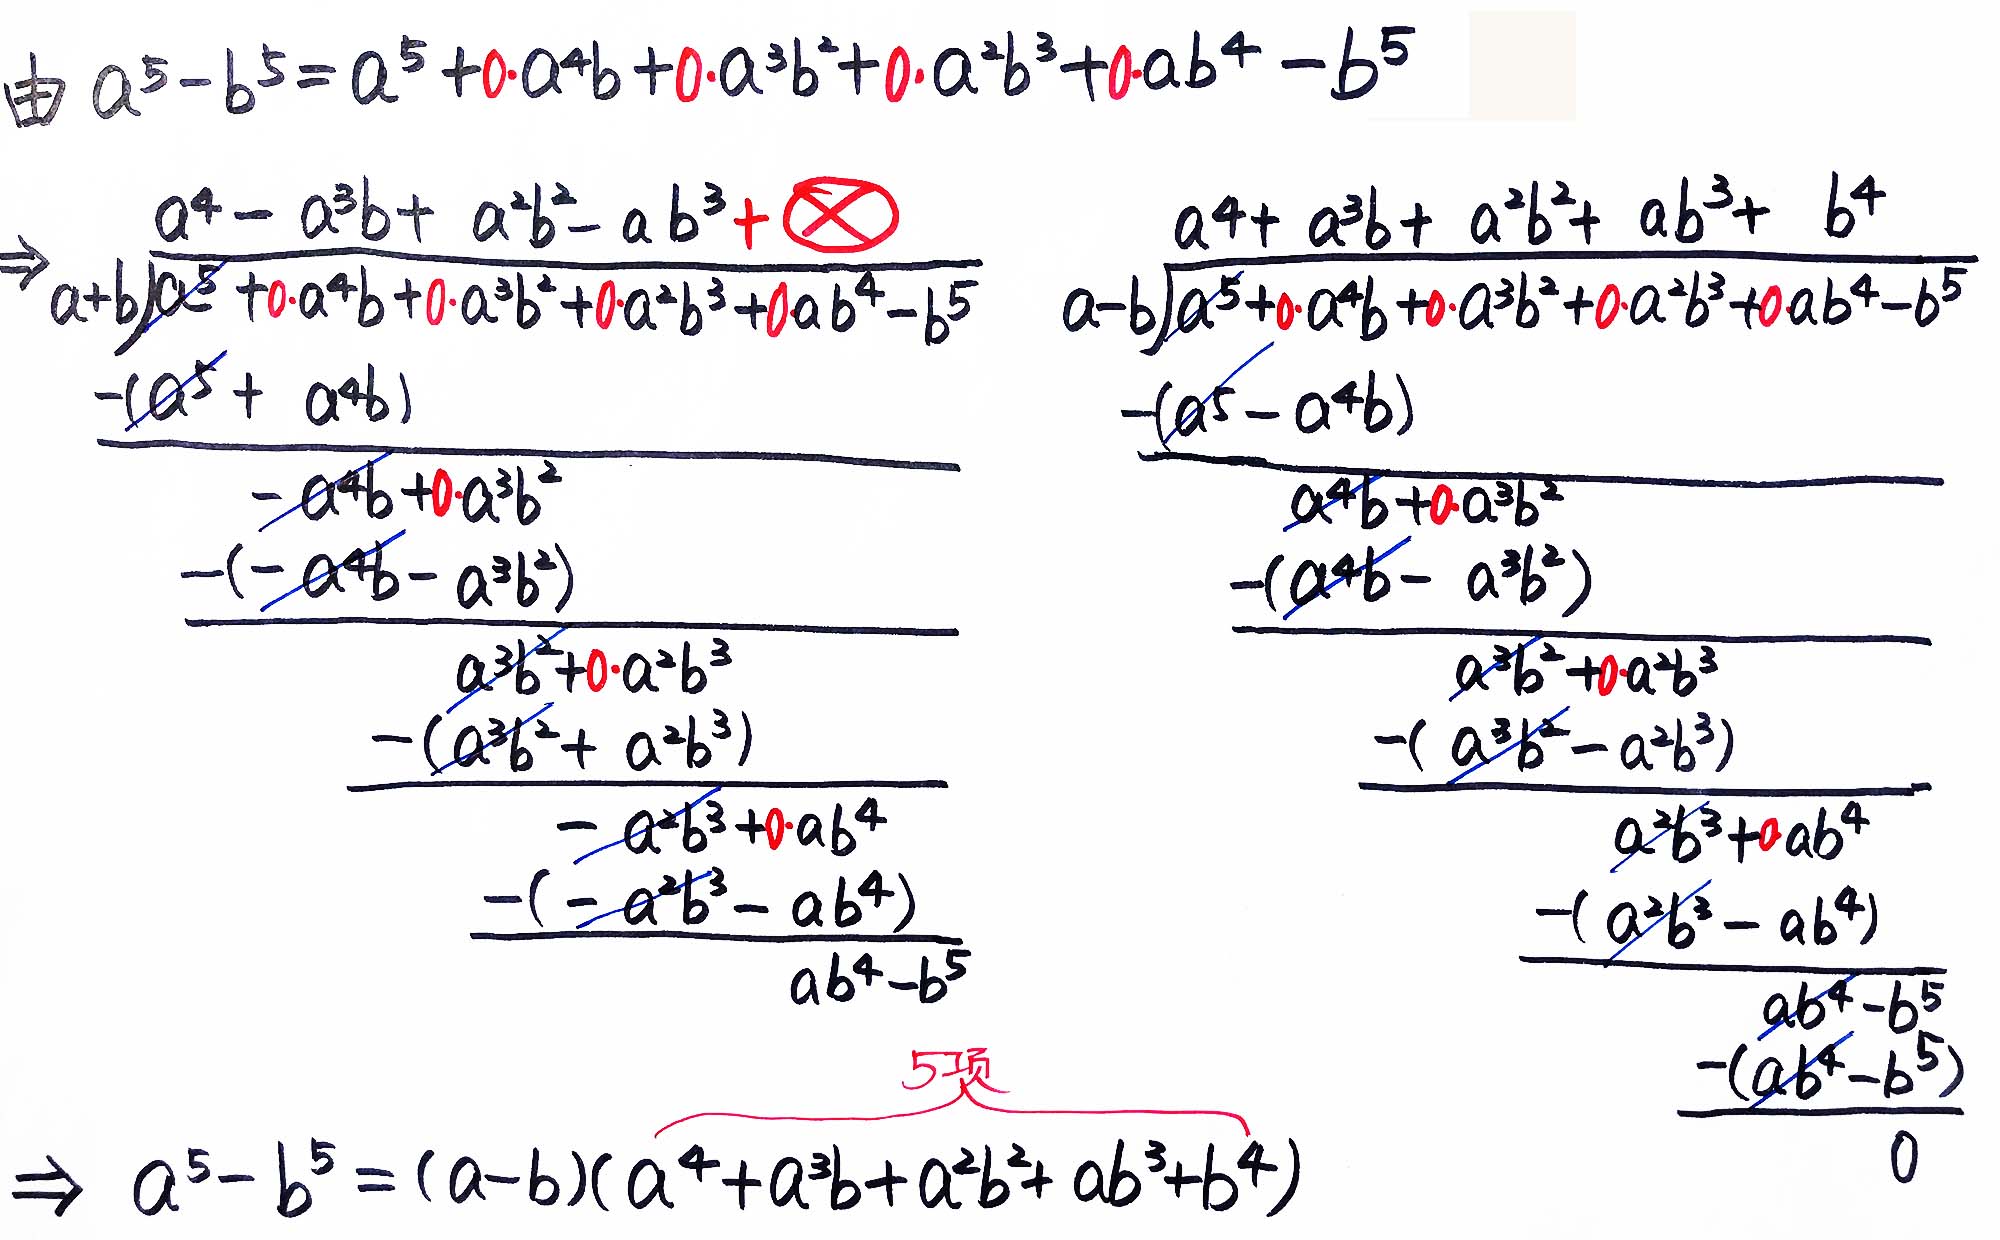 由 a⁵-b⁵=a⁵+0·a⁴b+0·a³b²+0·a²b³+0·ab⁴-b⁵
⇒
a⁴-a³b+a²b²-ab³+⊗
a+b)a⁵+0·a⁴b+0·a³b²+0·a²b³+0·ab⁴-b⁵
-(a⁵+a⁴b)
-a⁴b+0·a³b²
-(-a⁴b-a³b²)
a³b²+0·a²b³
-(a³b²+a²b³)
-a²b³+0·ab⁴
-(-a²b³-ab⁴)
ab⁴-b⁵
a⁴+a³b+a²b²+ab³+b⁴
a-b)a⁵+0·a⁴b+0·a³b²+0·a²b³+0·ab⁴-b⁵
-(a⁵-a⁴b)
a⁴b+0·a³b²
-(a⁴b-a³b²)
a³b²+0·a²b³
-(a³b²-a²b³)
a²b³+0·ab⁴
-(a²b³-ab⁴)
ab⁴-b⁵
-(ab⁴-b⁵)
0
5项
⇒ a⁵-b⁵=(a-b)(a⁴+a³b+a²b²+ab³+b⁴)